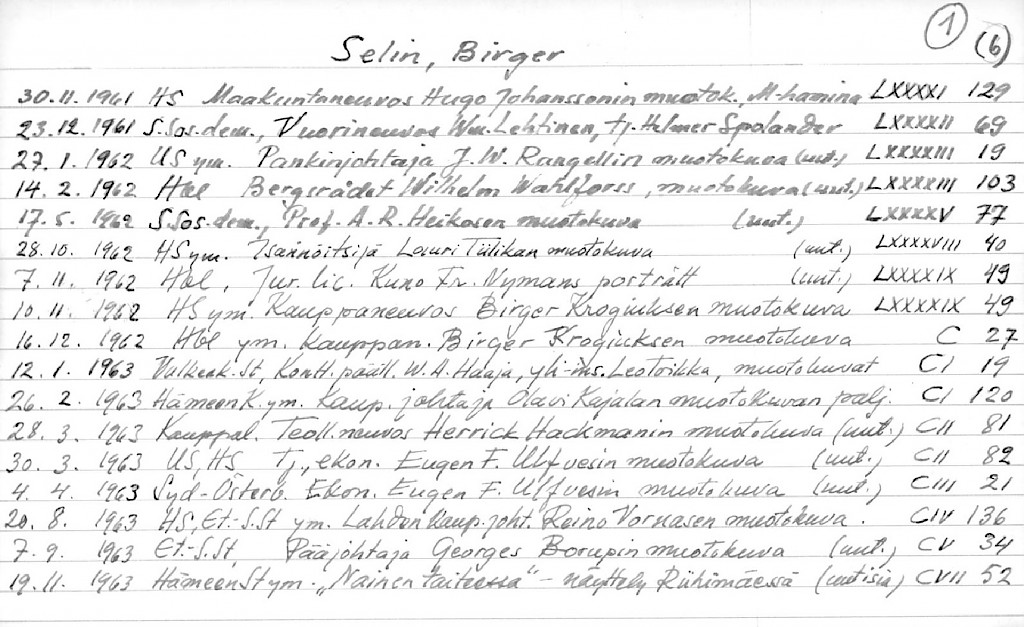 1 (6)
Selin, Birger
30.11.1961 HS Maakuntaneuvos Hugo Johanssonin muotok., M-hamina LXXXXI 129
23.12.1961 S.Sos.dem., Vuorineuvos Wm. Lehtinen, tj. Helmer Spolander LXXXXII 69
27.1.1962 US ym. Pankinjohtaja J.W. Rangellin muotokuva (uut.) LXXXXIII 19
14.2.1962 Hbl Bergsrådet Wilhelm Wahlforss, muotokuva (uut.) LXXXXIII 103
17.5.1962 S.Sos.dem., Prof. A.R. Heikosen muotokuva (uut.) LXXXXV 77
28.10.1962 HS ym. Isännöitsijä Lauri Tiilikan muotokuva (uut.) LXXXXVIII 40
7.11.1962 Hbl, Jur. lic. Kuno Fr. Nymans porträtt (uut.) LXXXXIX 49
10.11.1962 HS ym. Kauppaneuvos Birger Krogiuksen muotokuva LXXXXIX 49
16.12.1962 Hbl ym. Kauppan. Birger Krogiuksen muotokuva C 27
12.1.1963 Valkeak. St, Kontt. pääll. W.A. Haaja, yli-ins. Leo Toikka, muotokuvat CI 19
26.2.1963 Hämeen K. ym. Kaup. johtaja Olavi Kajalan muotokuvan palj. CI 120
28.3.1963 Kauppal. Teoll.neuvos Herrick Hackmanin muotokuva (uut.) CII 81
30.3.1963 US, HS Tj., ekon. Eugen F. Ulfvesin muotokuva (uut.) CII 82
4.4.1963 Syd-Österb. Ekon. Eugen F. Ulfvesin muotokuva (uut.) CIII 21
20.8.1963 HS, Et.-S.St ym. Lahden kaup.joht. Reino Vornasen muotokuva. CIV 136
7.9.1963 Et.-S.St, Pääjohtaja Georges Borupin muotokuva (uut.) CV 34
19.11.1963 Hämeen St ym. „Nainen taiteessa" - näyttely Riihimäessä (uutisia) CVII 52